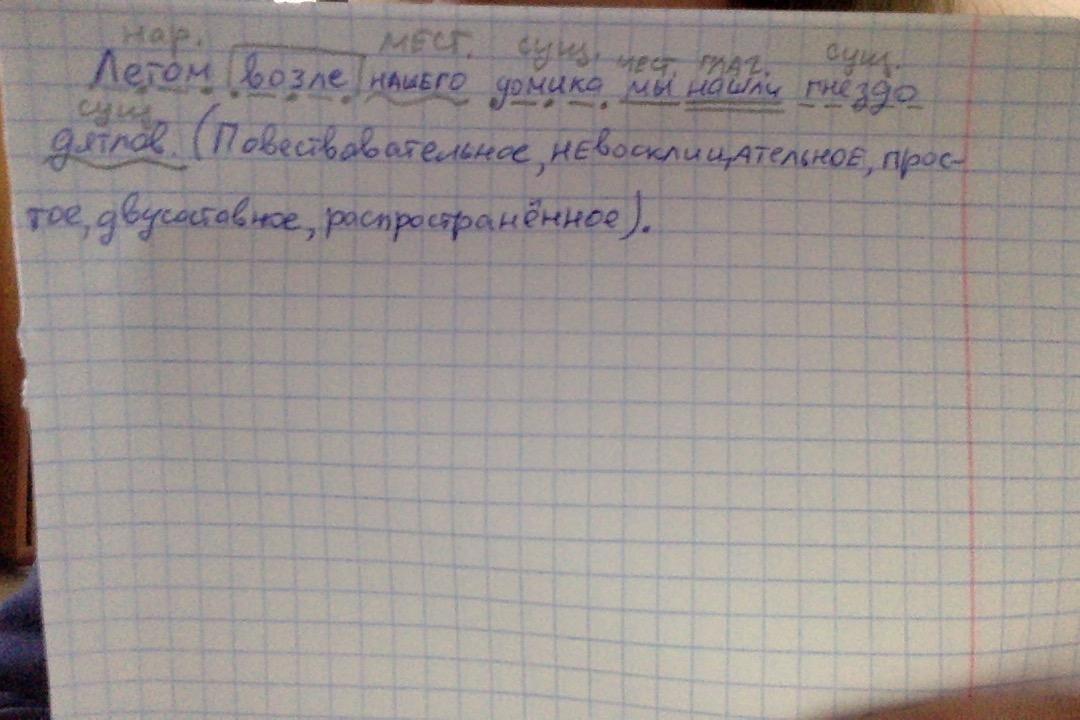 нар. мест. сущ. мест. глаг. сущ.
Летом возле нашего домика мы нашли гнездо
сущ.
дятлов. (Повествовательное, невосклицательное, прос-
тое, двусоставное, распространённое).